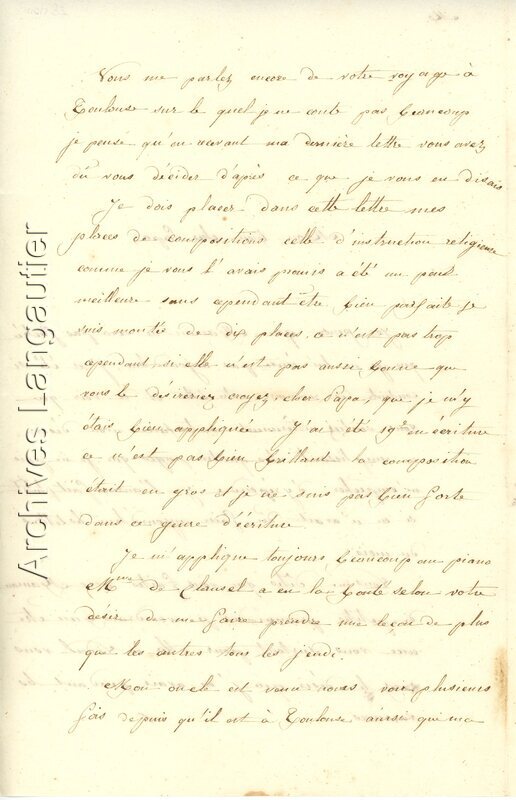 Vous me parlez encore de votre voyage à
Toulouse sur le quel je ne conte pas beaucoup
je pense qu'en recevant ma dernière lettre vous avez
dû vous décider d'après ce que je vous en disais
Je dois placer dans cette lettre mes
places de compositions celle d'instruction religieuse
comme je vous l'avais promis a été un peu
meilleure sans cependant être bien parfaite je
suis montée de dix places, ce n'est pas trop
cependant, si elle n'est pas aussi bonne que
vous le désireriez croyez, cher Papa, que je m'y
étais bien appliquée J'ai été 19e en écriture
ce n'est pas bien brillant la composition
était en gros et je ne suis pas bien forte
dans ce genre d'écriture
Je m'applique toujours beaucoup au piano
Mme de Clausel a eu la bonté selon votre
désir de me faire prendre une leçon de plus
que les autres tous les jeudi.
Mon oncle est venu nous voir plusieurs
fois depuis qu'il est à Toulouse ainsi que ma
Archives Langautier